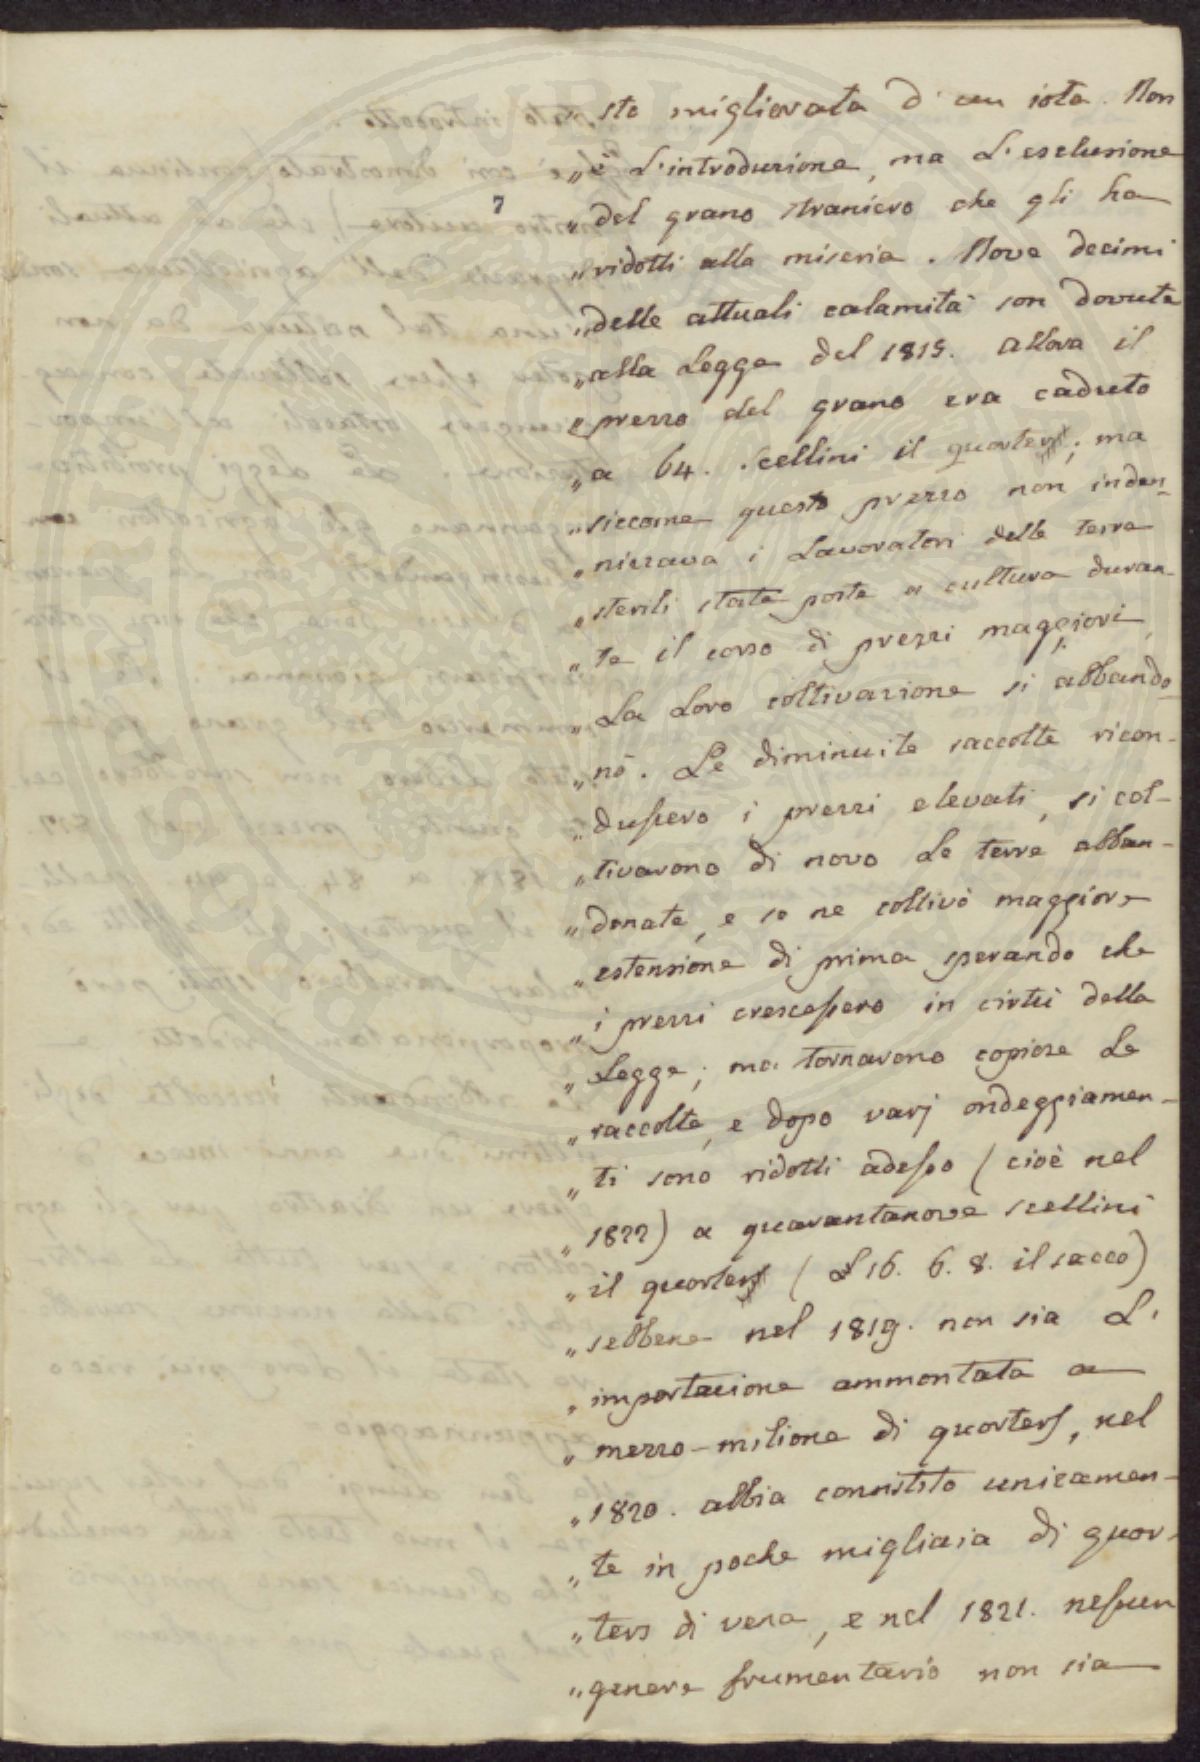 „ sto migliorata d'un iota. Non
„ è L'introduzione, ma L'esclusione
7
„ del grano straniero che gli ha
„ ridotti alla miseria. Nove decimi
„ delle attuali calamità son dovute
„ alla Legge del 1815. allora il
„ prezzo del grano era caduto
„ a 64. scellini il quarters; ma
„ siccome questo prezzo non inden-
„ nizzava i Lavoratori delle terre
„ sterili state poste a cultura duran-
„ te il corso di prezzi maggiori,
„ La Loro coltivazione si abbando-
„ nò. Le diminuite raccolte ricon-
„ dussero i prezzi elevati, si col-
„ tivarono di novo Le terre abban-
„ donate, e se ne coltivò maggiore
„ estensione di prima sperando che
„ i prezzi crescessero in virtù della
„ Legge; ma tornarono copiose Le
„ raccolte, e dopo varj ondeggiamen-
„ ti sono ridotti adesso (cioè nel
„ 1822) a quarantanove scellini
„ il quarters (£ 16. 6. 8. il sacco)
„ sebbene nel 1819. non sia L'
„ importazione ammontata a
„ mezzo-milione di quarters, nel
„ 1820. abbia consistito unicamen-
„ te in poche migliaia di quar-
„ ters di vena, e nel 1821. nessun
„ genere frumentario non sia